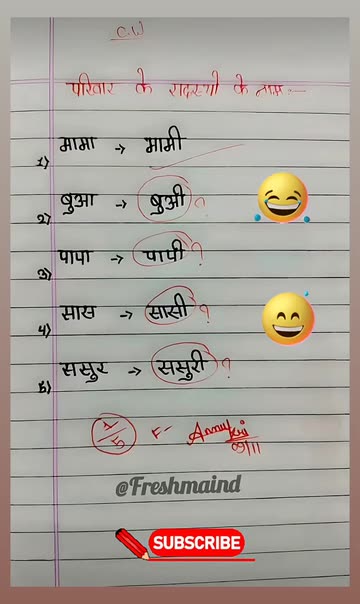 C.W
परिवार के सदस्यों के नाम :-
1) मामा → मामी
2) बुआ → बुऔ ?
3) पापा → पापी ?
4) सास → सासी ?
5) ससुर → ससुरी ?
1/5 F-
09/11
@Freshmaind
SUBSCRIBE